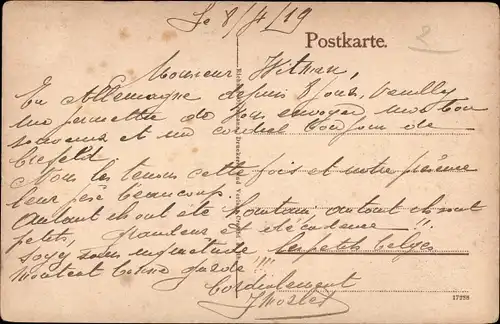 Le 8/4/19
Postkarte.
Monsieur
En Allemagne depuis 8 jours, veuillez
me permettre de vous envoyer mon bon
souvenir et un cordial bonjour de
Crefeld.
Nous les tenons cette fois et notre présence
leur pèse beaucoup.
Autant ils ont été hautains autant ils sont
petits, grandeur et décadence !!!
Soyez sans inquiétude les petits belges
montent bonne garde !!!!
Cordialement
17228